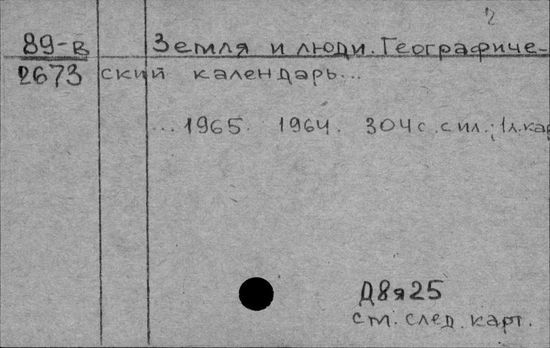 2
89-в Земля и люди. Географиче-
2673 ский календарь...
...1965. 1964. 304с. с ил.; 1л. кар
Д8я25
см. след. карт.